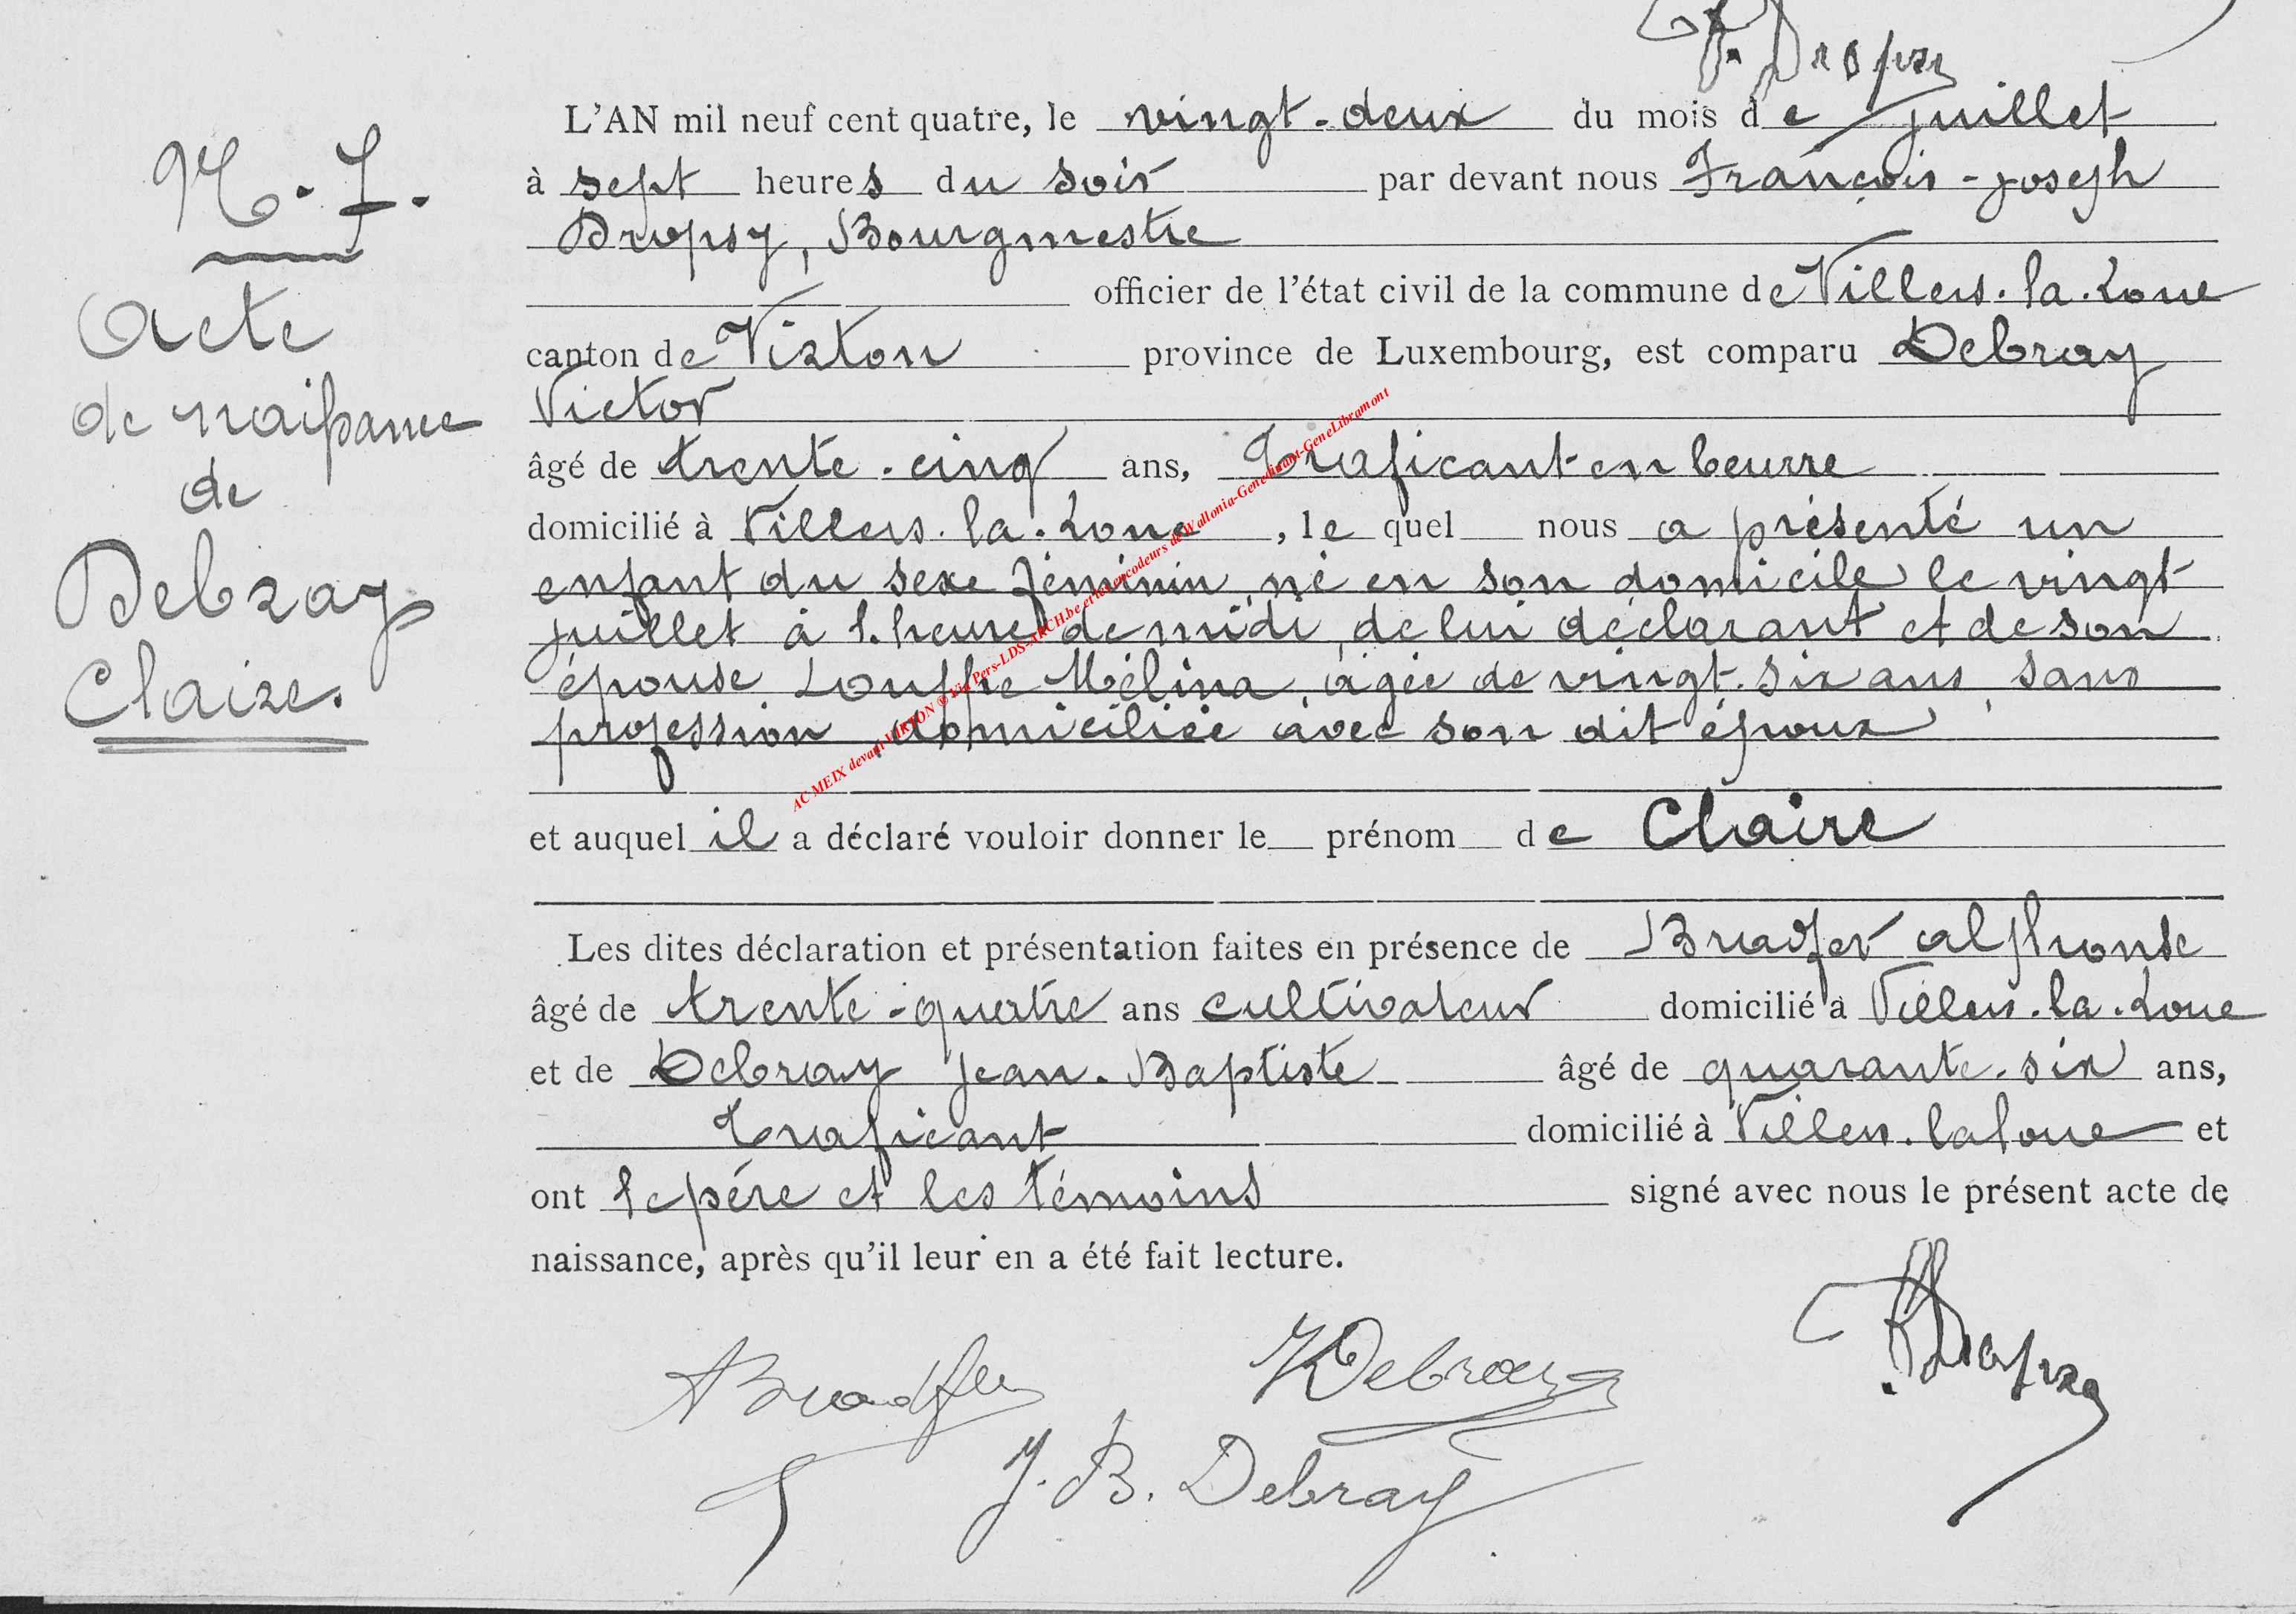 F. Dropsy
N. 7.
Acte
de naissance
de
Debray
Claire.
L'AN mil neuf cent quatre, le vingt-deux du mois de juillet
à sept heures du soir par devant nous François-Joseph
Dropsy, Bourgmestre
officier de l'état civil de la commune de Villers-la-Loue
canton de Virton province de Luxembourg, est comparu Debray
Victor
âgé de trente-cinq ans, Traficant en beurre
domicilié à Villers-la-Loue, lequel nous a présenté un
enfant du sexe féminin, né en son domicile le vingt
juillet à 1. heure de midi, de lui déclarant et de son
épouse Louppe Mélina, agée de vingt-six ans, sans
profession domiciliée avec son dit époux
et auquel il a déclaré vouloir donner le prénom de Claire
Les dites déclaration et présentation faites en présence de Bradfer Alphonse
âgé de trente-quatre ans cultivateur domicilié à Villers-la-Loue
et de Debray Jean-Baptiste âgé de quarante-six ans,
Traficant domicilié à Villers-laloue et
ont le père et les témoins signé avec nous le présent acte de
naissance, après qu'il leur en a été fait lecture.
ABradfer
VDebray
J. B. Debray
F. Dropsy
AC MEIX devant VIRTON © Via Pers-LDS-ARCH.be et les encodeurs de Wallonia-GeneDinant-GeneLibramont